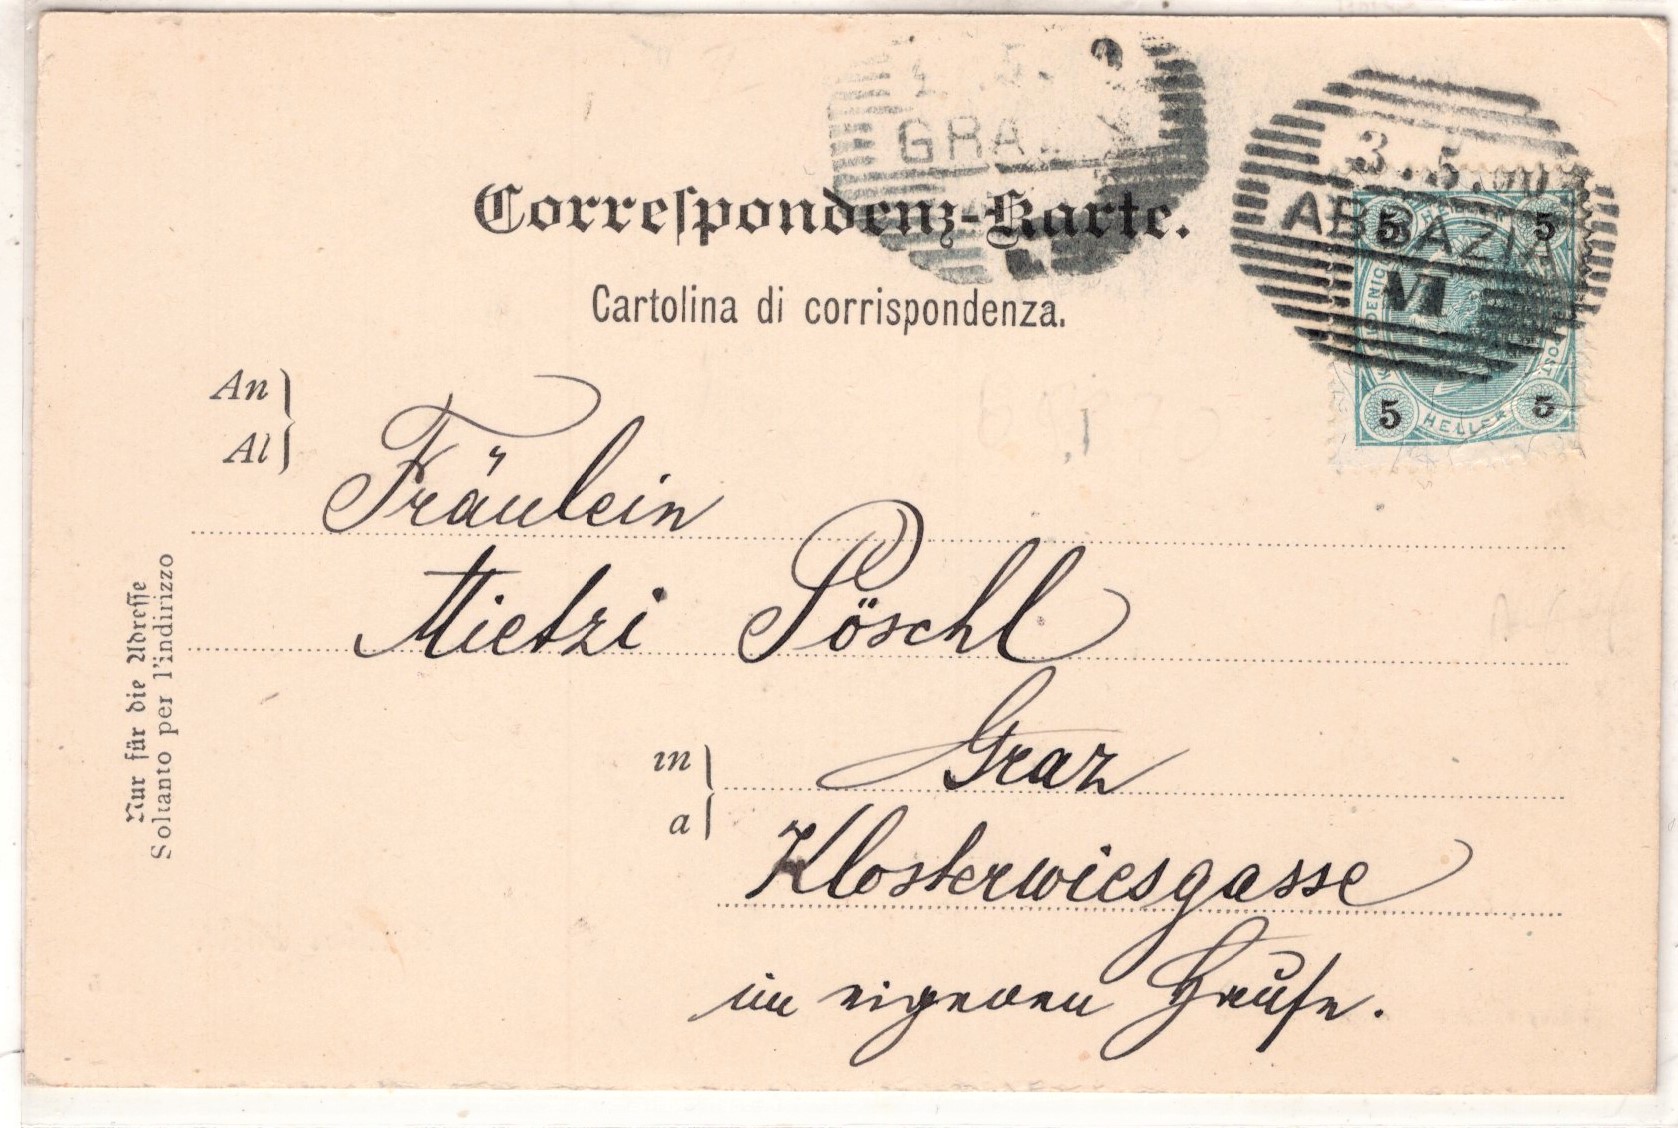 GRA
3.5.00
ABBAZIA
VI
5 5
HELLER
5 5
Correſpondenz-Karte.
Cartolina di corrispondenza.
An
Al
Fräulein
Mietzi Pöschl
in
a
Graz
Klosterwiesgasse
im eigenen Hauſe.
Nur für die Adreſſe
Soltanto per l'indirizzo